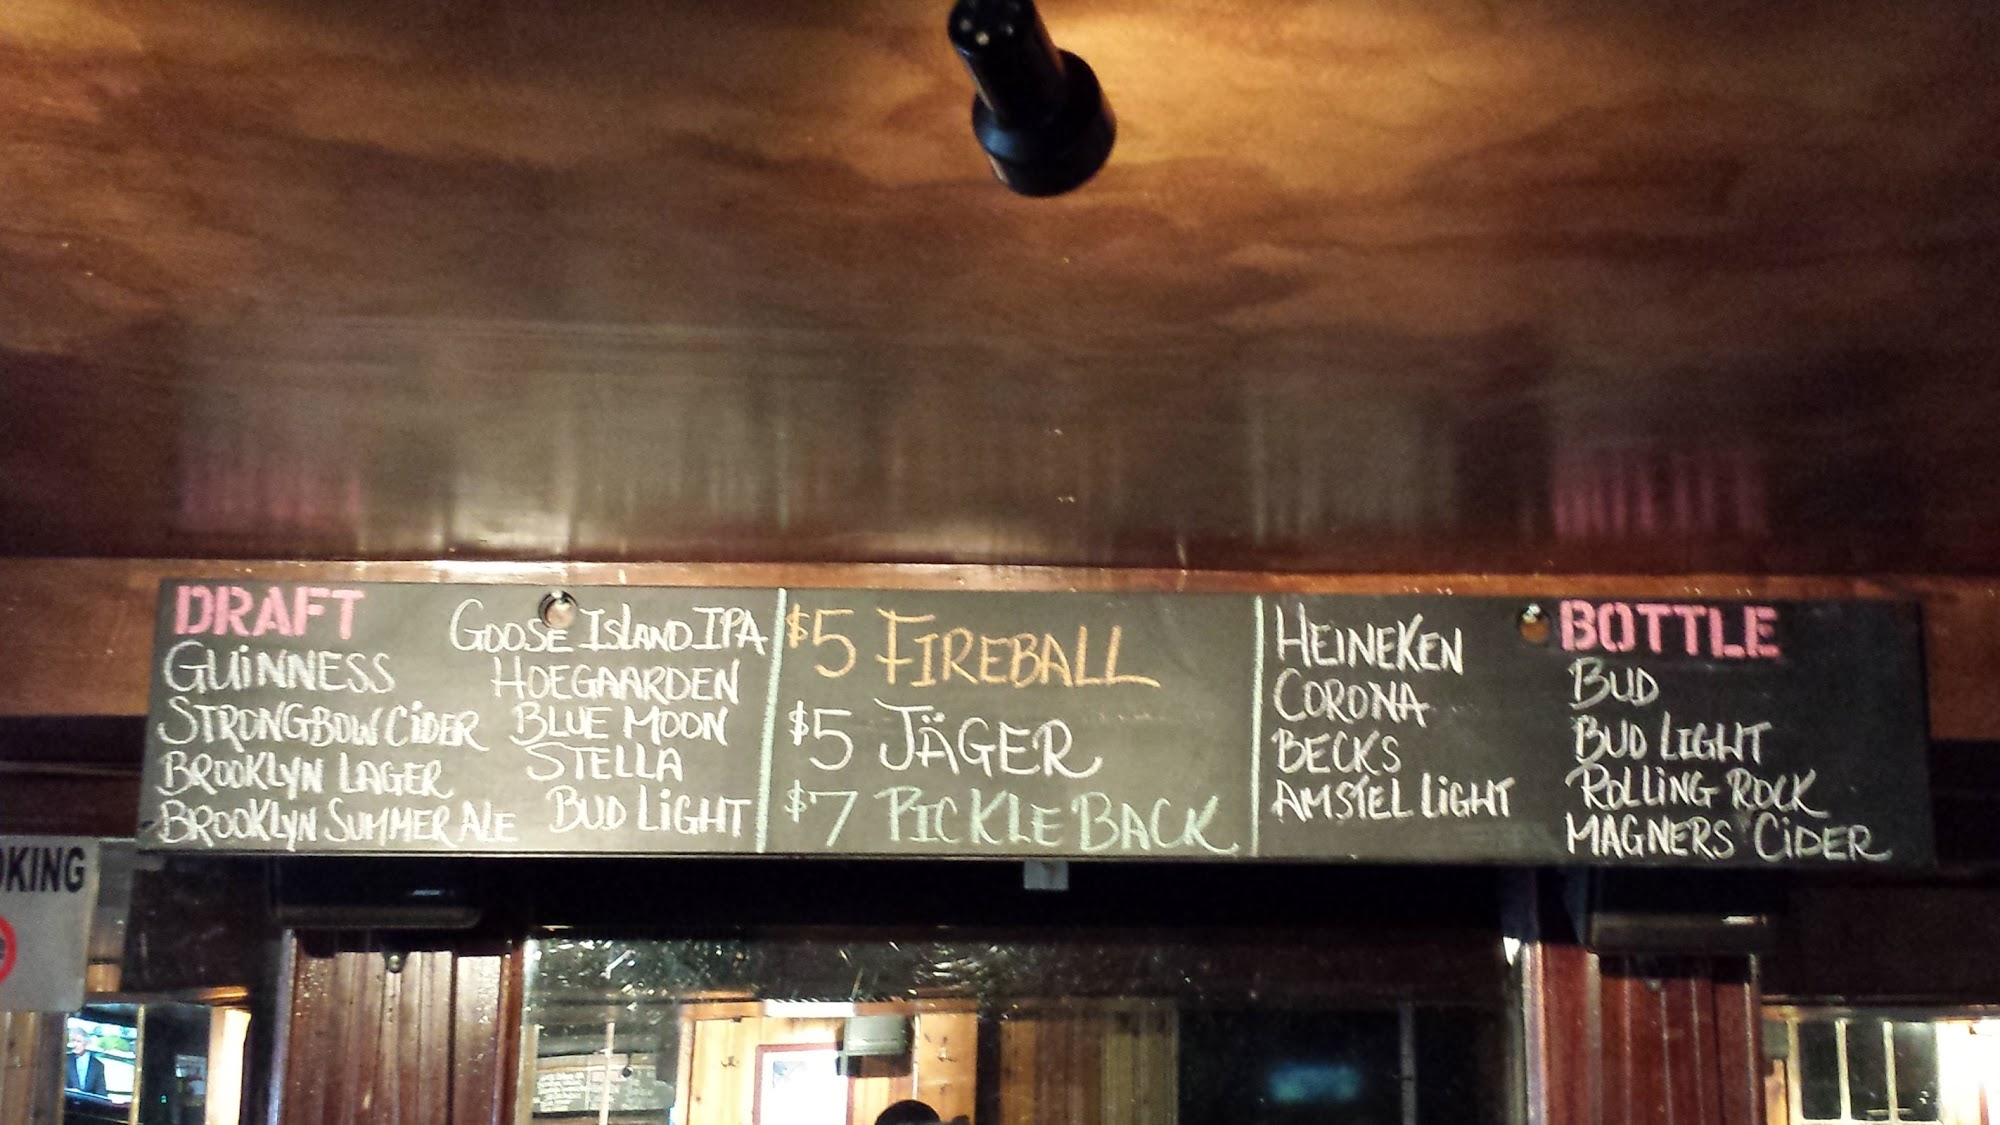 DRAFT
GUINNESS
STRONGBOW CIDER
BROOKLYN LAGER
BROOKLYN SUMMER ALE
GOOSE ISLAND IPA
HOEGAARDEN
BLUE MOON
STELLA
BUD LIGHT
$5 FIREBALL
$5 JÄGER
$7 PICKLE BACK
HEINEKEN
CORONA
BECKS
AMSTEL LIGHT
BOTTLE
BUD
BUD LIGHT
ROLLING ROCK
MAGNERS CIDER
OKING